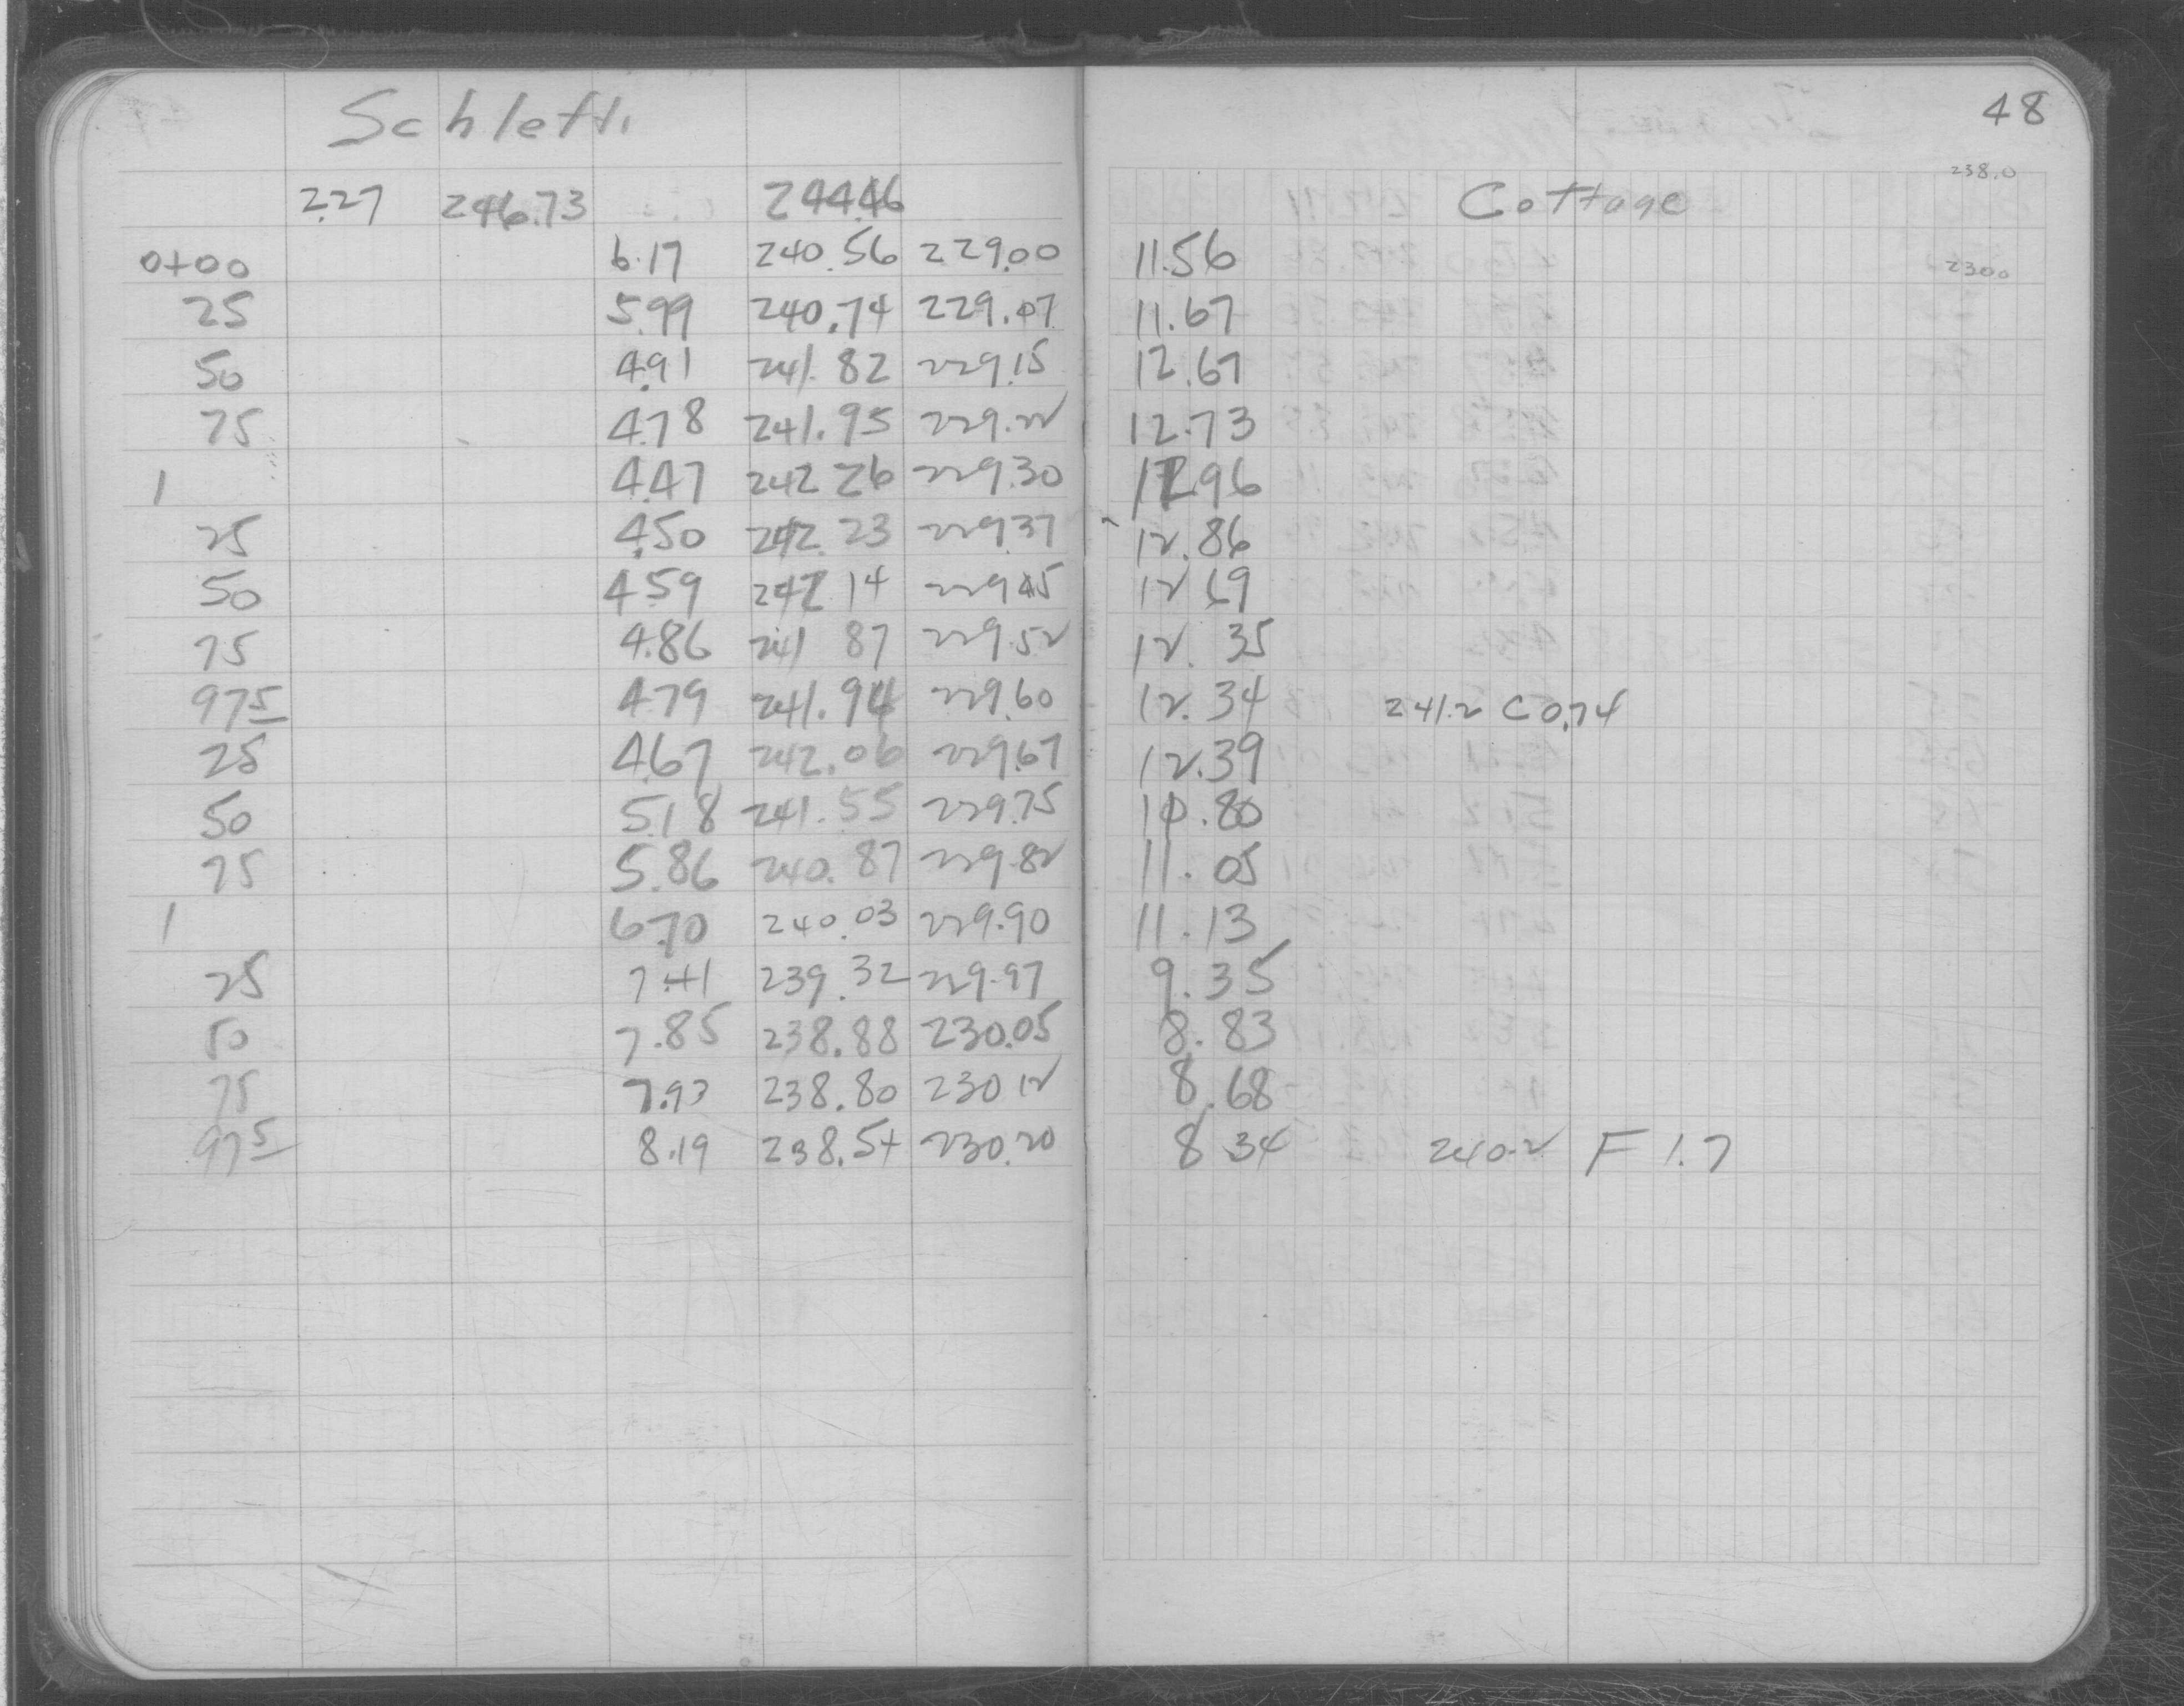 48
238.0
2.27 246.73 244.46 Cottage
0+00 6.17 240.56 229.00 11.56 230.0
25 5.99 240.74 229.07 11.67
50 4.91 241.82 229.15 12.67
75 4.78 241.95 229.22 12.73
1 4.47 242.26 229.30 12.96
25 4.50 242.23 229.37 12.86
50 4.59 242.14 229.45 12.69
75 4.86 241 87 229.52 12.35
97.5 4.79 241.94 229.60 12.34 241.2 C 0.74
25 4.67 242.06 229.67 12.39
50 5.18 241.55 229.75 10.80
75 5.86 240.87 229.82 11.05
1 6.70 240.03 229.90 11.13
25 7.41 239.32 229.97 9.35
50 7.85 238.88 230.05 8.83
75 7.93 238.80 230 12 8.68
97.5 8.19 238.54 230.20 8 34 240.2 F 1.7